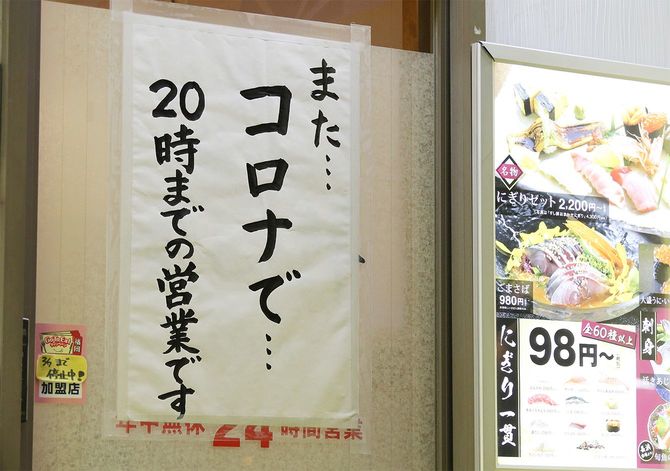 また…
コロナで…
20時までの営業です
年中無休 24時間営業
福岡
まで
停止中!
加盟店
名物
にぎりセット 2,200円〜
ごまさば
980円
全60種以上
98円〜
にぎり一貫
刺身